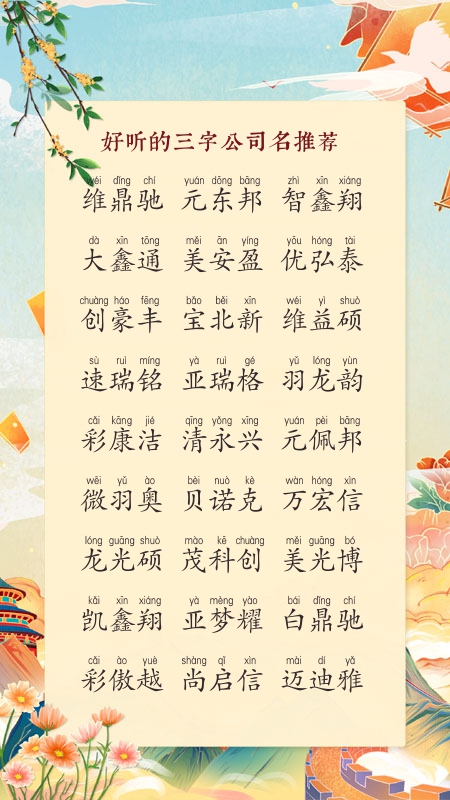 好听的三字公司名推荐
wéi dǐng chí yuán dōng bāng zhì xīn xiáng
维鼎驰 元东邦 智鑫翔
dà xīn tōng měi ān yíng yōu hóng tài
大鑫通 美安盈 优弘泰
chuàng háo fēng bǎo běi xīn wéi yì shuò
创豪丰 宝北新 维益硕
sù ruì míng yà ruì gé yǔ lóng yùn
速瑞铭 亚瑞格 羽龙韵
cǎi kāng jié qīng yǒng xīng yuán pèi bāng
彩康洁 清永兴 元佩邦
wēi yǔ ào bèi nuò kè wàn hóng xìn
微羽奥 贝诺克 万宏信
lóng guāng shuò mào kē chuàng měi guāng bó
龙光硕 茂科创 美光博
kǎi xīn xiáng yà mèng yào bái dǐng chí
凯鑫翔 亚梦耀 白鼎驰
cǎi ào yuè shàng qǐ xìn mài dí yǎ
彩傲越 尚启信 迈迪雅